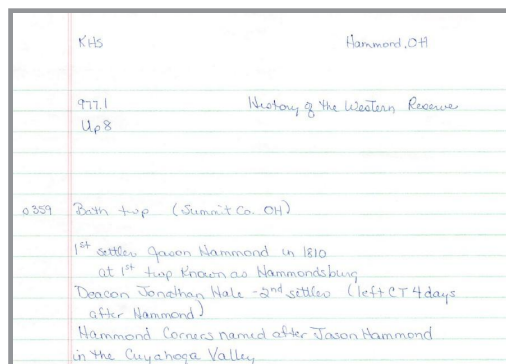 KHS Hammond, OH
977.1 History of the Western Reserve
Up8
0359 Bath twp (Summit Co. OH)
1st settler Jason Hammond in 1810
at 1st twp known as Hammondsburg
Deacon Jonathan Hale - 2nd settler (left CT 4 days
after Hammond)
Hammond Corners named after Jason Hammond
in the Cuyahoga Valley